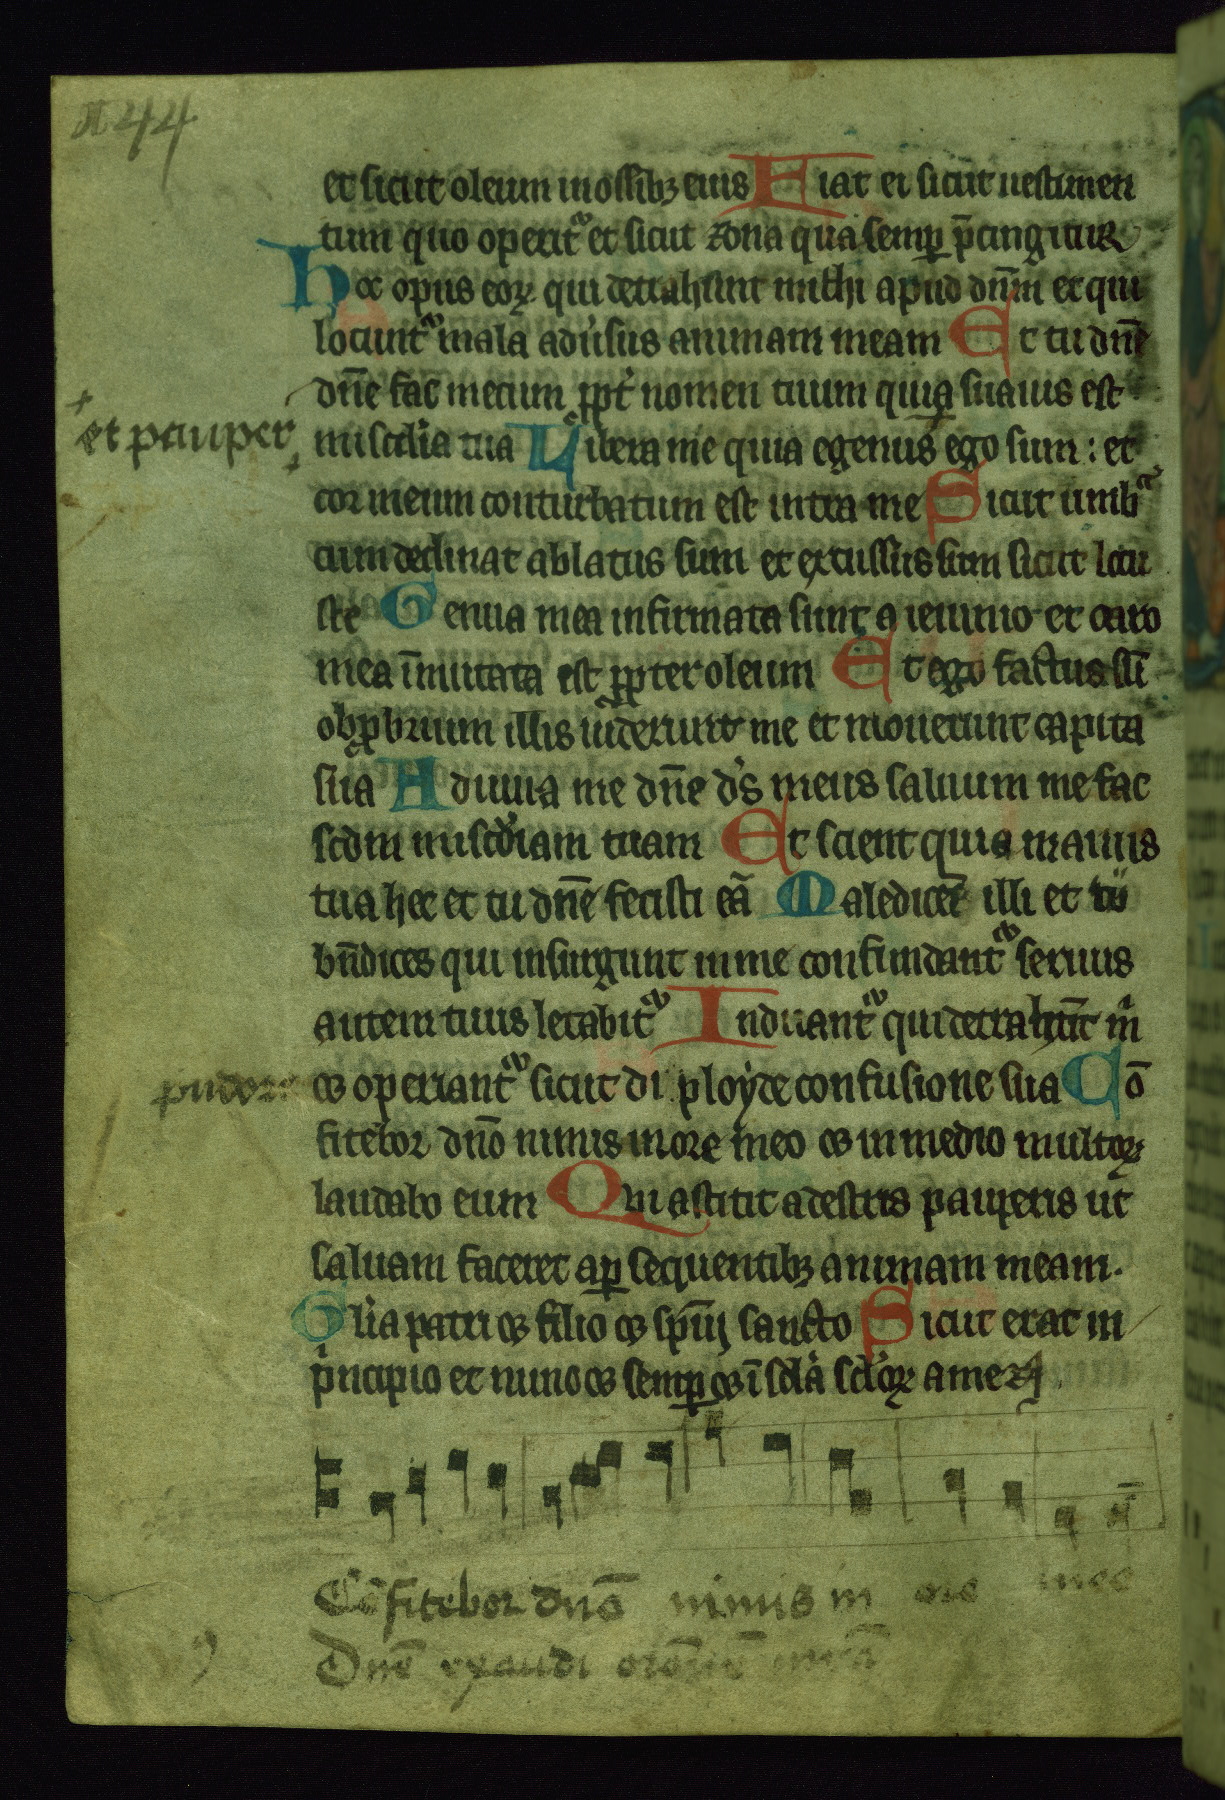 44
et sicut oleum in ossibꝫ eius Fiat ei sicut uestimen
tum quo operit᷑ et sicut zona qua semꝑ p̄cingitur
Hoc opus eoꝝ qui detrahunt michi apud dn̄m et qui
locunt᷑ mala adu͛sus animam meam Et tu dn̄e
dn̄e fac mecum ꝓpt͛ nomen tuum quia suauis est
misc͛dia tua Libera me quia egenus ego sum : et
et pauper
cor meum conturbatum est intra me Sicut umbᵃ
cum declinat ablatus sum et excussus sum sicut locu
ste Genua mea infirmata sunt a ieiunio et caro
mea īmutata est ꝓpter oleum Et ego factus sū
obꝓbrium illis uiderunt me et mouerunt capita
sua Adiuua me dn̄e ds̄ meus saluum me fac
scd̄m misc͛diam tuam Et scient quia manus
tua hec et tu dn̄e fecisti eā Maledicēt illi et tu
bn̄dices qui insurgunt in me confundant᷑ seruus
autem tuus letabit᷑ Induant᷑ qui detrahūt m̄
pudore
⁊ operiant᷑ sicut diployde confusione sua Cō
fitebor dn̄o nimis in ore meo ⁊ in medio multoꝝ
laudabo eum Qui astitit a dextris pauperis ut
saluam faceret a ꝑsequentibꝫ animam meam.
Gl̄ia patri ⁊ filio ⁊ sp̄ui sancto Sicut erat in
pͥncipio et nunc ⁊ semꝑ ⁊ ī scl̄a scl̄oꝝ amen
Cōfitebor dn̄o nimis in ore meo
Dn̄e exaudi orōnē meā